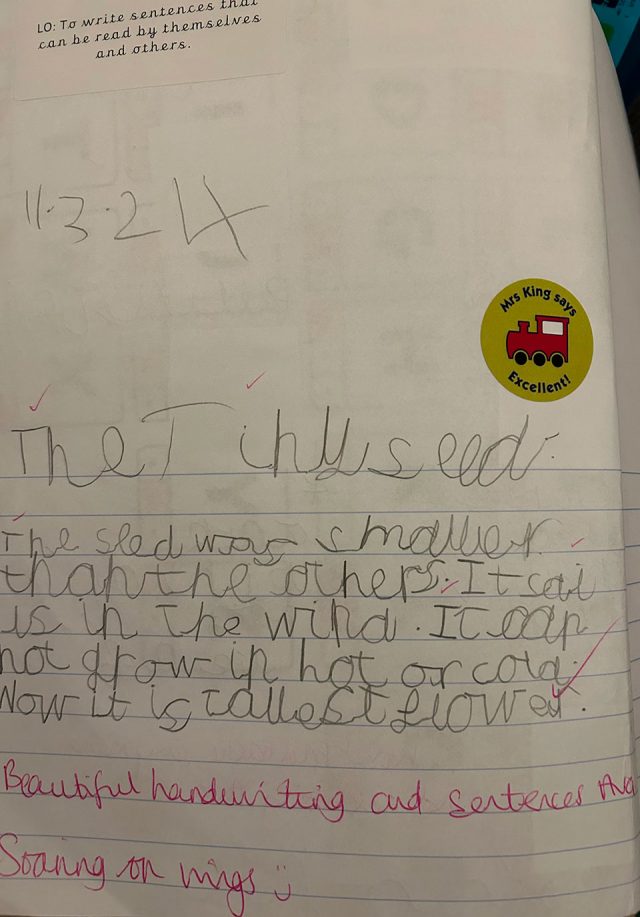 LO: To write sentences that
can be read by themselves
and others.
11.3.24
Mrs King says
Excellent!
The Tiny seed.
The seed was smaller
than the others. It sail
is in the wind. It can
not grow in hot or cold.
Now it is tallest flower.
Beautiful handwriting and sentences Ava
Soaring on wings